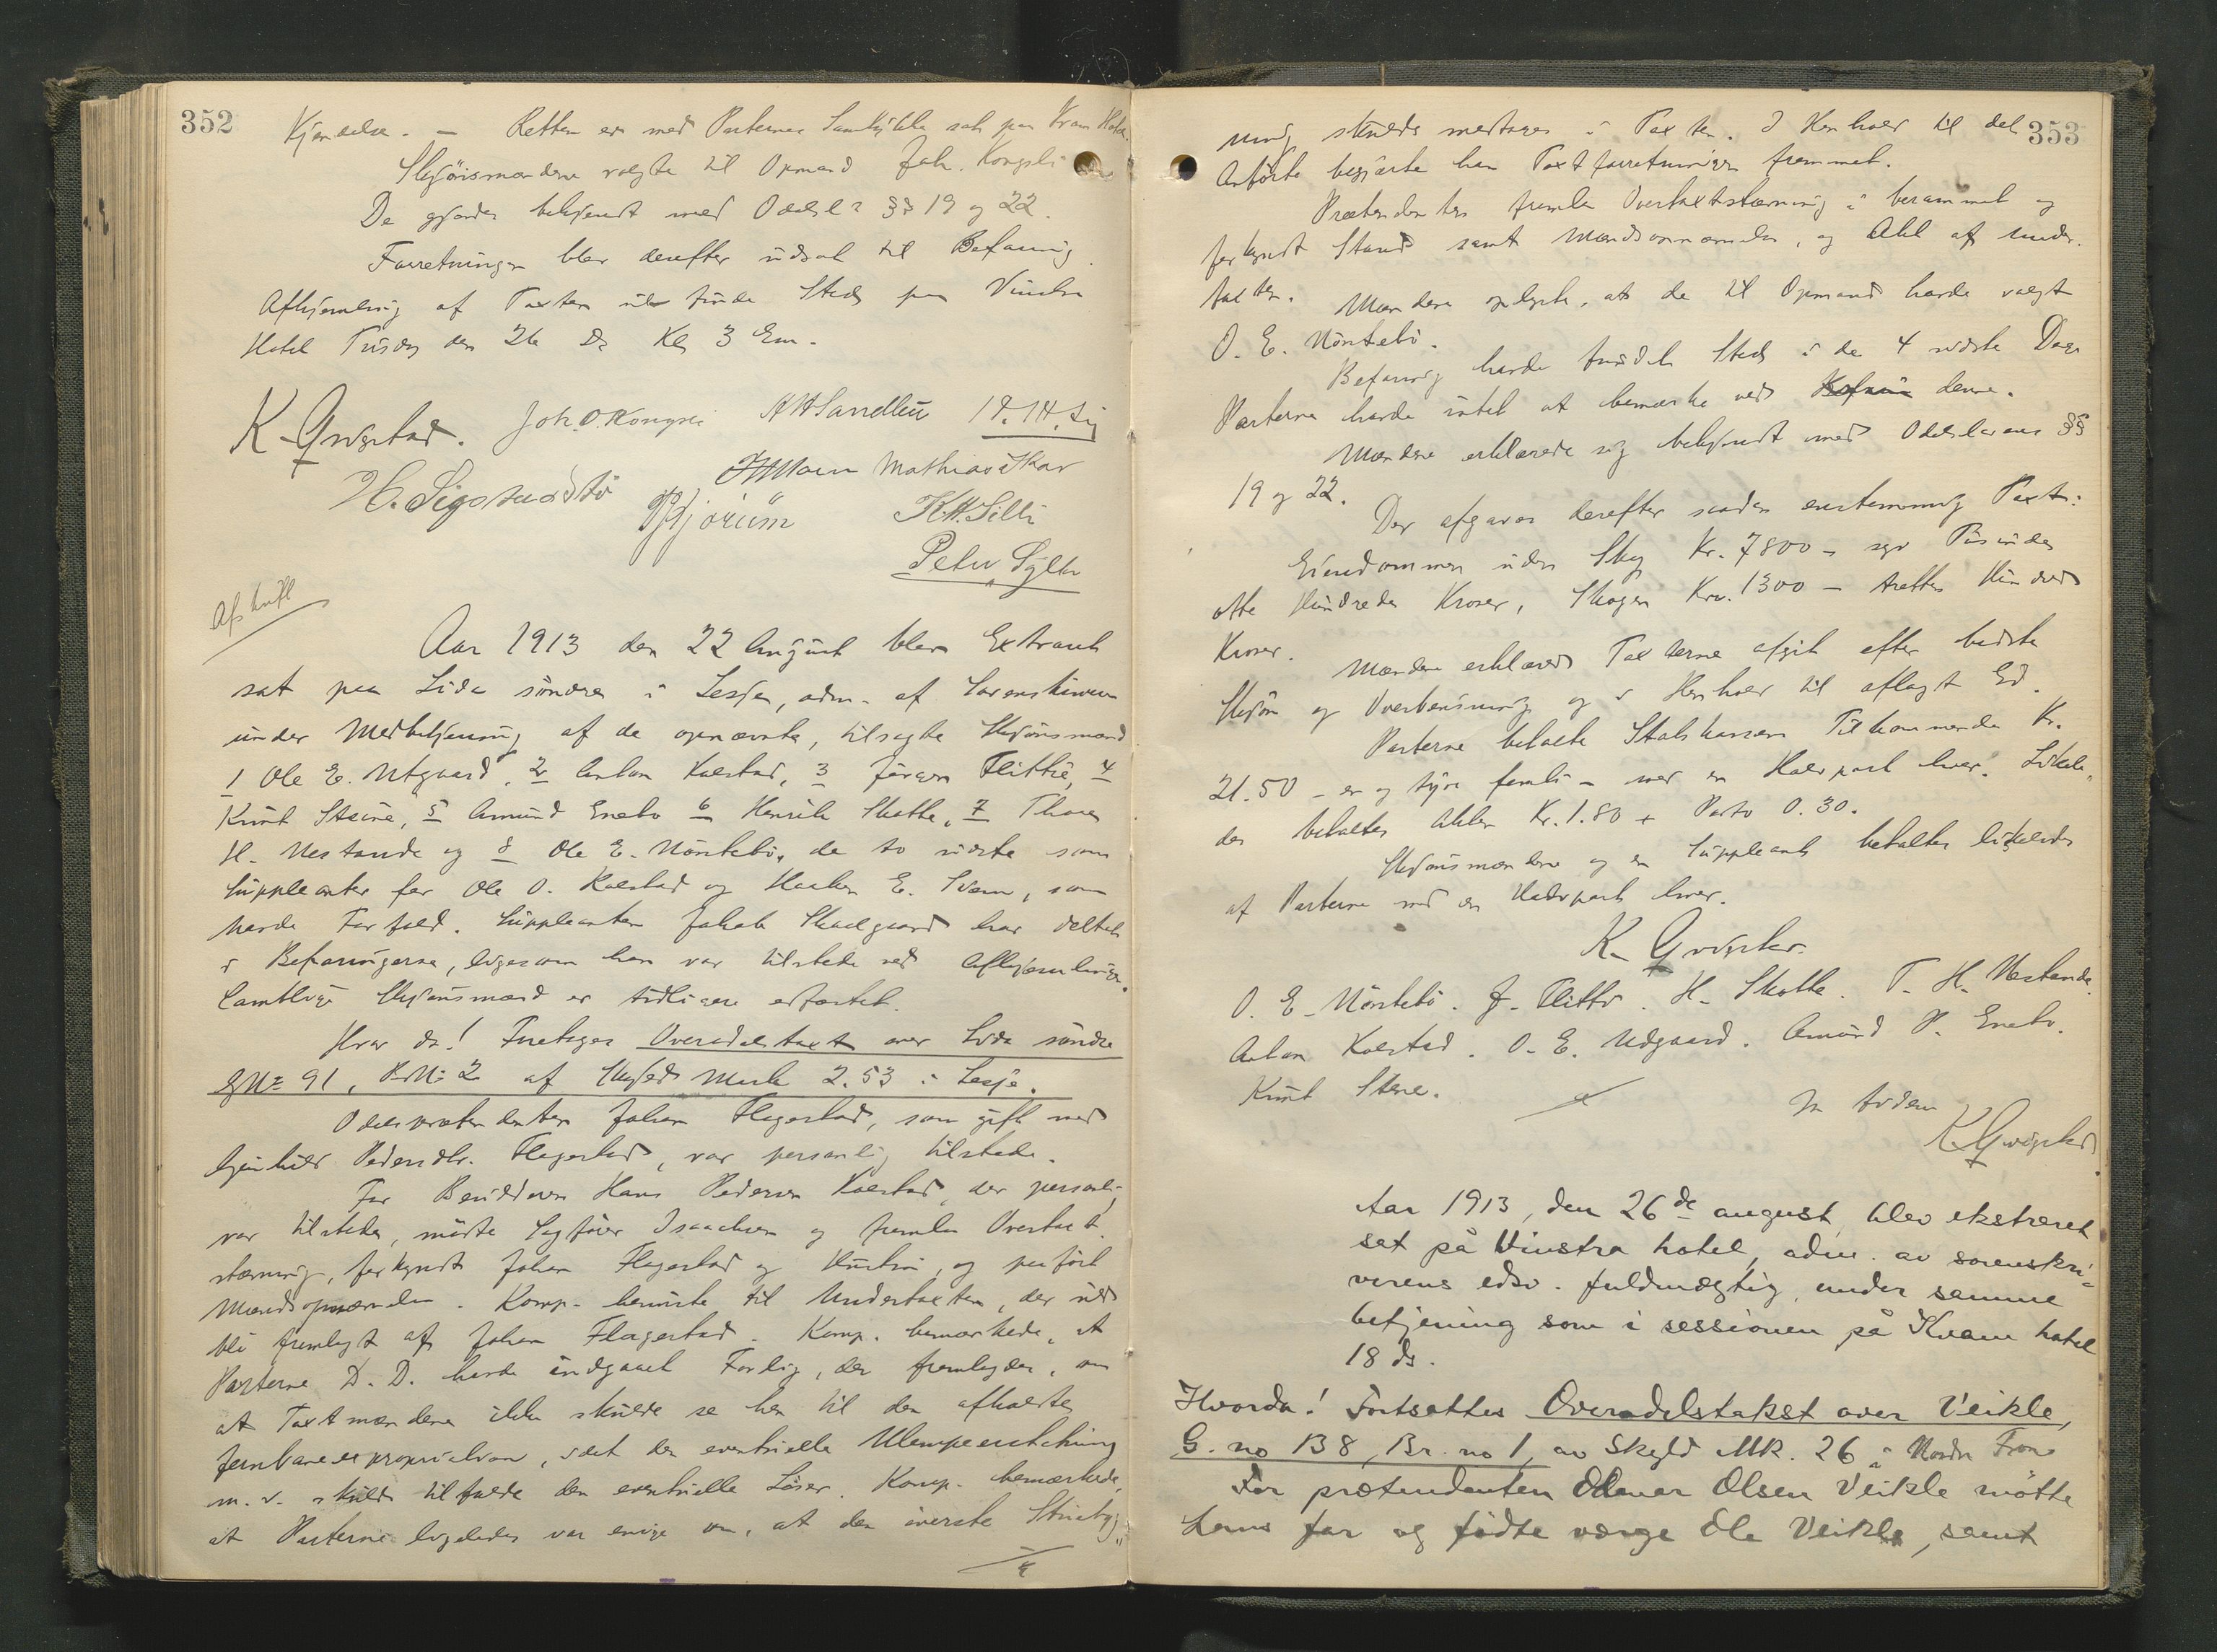 352
Kjendelse. — Retten er med Parternes Samtykke sat paa Kvam Hotel.
Skjönsmændene valgte til Opmand Joh. Kongsli
De gjordes bekjendt med Odelsl. §§ 19 og 22.
Forretningen blev derefter udsat til Befaring.
Afhjemling af Taxten vil finde Sted paa Vinstra
Hotel Tirsdag den 26 Ds Kl 3 Em.
K Grigstad. Joh. O. Kongsli
H. Sigstadstö Mathias Skar
K.H. Silli
Peter Sylte
Afskrift
Aar 1913 den 22 August blev Extraret
sat paa Lida söndre i Lesje, adm. af Sorenskriveren
under Medbetjening af de opnævnte, tilsagte Skjönsmænd
1 Ole E. Utgaard, 2 Anton Kolstad, 3 Jörgen Flittie, 4
Knut Stene, 5 Amund Enebo 6 Henrik Skotte, 7 Thore
H. Nestande og 8 Ole E. Nörstebö, de to sidste som
Suppleanter for Ole O. Kolstad og Haaken E. , som
havde Forfald. Suppleanten Jakob har deltat
i Befaringerne, ligesom han var tilstede ved Afhjemlingen.
Samtlige Skjönsmænd er tidligere edfæstet.
Hvor da! Foretages Overodelstaxt over Lida söndre
GNr 91, BrNr 2 af Skyld Mark 2.53 i Lesje.
Odelsprætendenten Johan Flagestad, som gift med
Gunhild Pedersdtr. Flagestad, var personlig tilstede.
For Besidderen Hans Pedersen Kolstad, der personlig
var tilstede, mödte Sagförer Isaachsen og fremla Overtaxt
stævning, forkyndt Johan Flagestad og Hustru, og paaført
Mandsopnævnelse. Komp. henviste til Undertaxten, der vil
bli fremlagt af Johan Flagestad. Komp. bemærkede, at
Parterne D. D. havde indgaaet Forlig, der fremlagdes, om
at Taxtmændene ikke skulde se hen til den afholdte
Jernbaneexpropriation, idet den eventuelle Ulempeerstatning
m. v. skulde tilfalde den eventuelle Löser. Komp. bemærkede,
at Parterne ligeledes var enige om, at den överste Stuebyg-
353
ning skulde medtages i Taxten. I Henhold til det
Anförte begjærte han Taxtforretningen fremmet.
Prætendenten fremla Overtaxtstævning i berammet og
forkyndt Stand samt Mandsopnævnelse, og Akt af Under-
taxten. Mændene oplyste, at de til Opmand havde valgt
O. E. Nörstebö.
Befaring havde fundet Sted i de 4 sidste Dage
Parterne havde intet at bemærke ved denne.
Mændene erklærede sig bekjendt med Odelslovens §§
19 og 22.
Der afgaves derefter saadan enstemmig Taxt:
Eiendommen uden Skog Kr. 7800 - syv Tusinde
otte Hundrede Kroner, Skogen Kr. 1300 - tretten Hundrede
Kroner. Mændene erklæred Taxterne afgit efter bedste
Skjön og Overbevisning og i Henhold til aflagt Ed.
Parterne betalte Statskassens Tilkommende Kr.
21.50 - en og tyve femti - med en Halvpart hver. Likele-
des betaltes Akten Kr. 1.80 + Porto 0.30.
Skjönsmændene og en Suppleant betaltes likeledes
af Parterne med en Halvpart hver.
K. Grigstad.
O. E. Nörstebö. J. Flittie. H. Skotte. T. H. Nestande.
Anton Kolstad. O. E. Udgaard. Amund P. Enebo.
Knut Stene.
K Grigstad
Aar 1913, den 26de august blev ekstraret
sat på Vinstra hotel, adm. av sorenskri-
verens edsv. fuldmægtig, under samme
betjening som i sessionen på Kvam hotel
18 ds.
Hvorda! Fortsattes Overodelstakst over Veikle,
G. no 138, Br. no 1, av Skyld Mk. 26 i Nordre Fron.
For prætendenten Olsen Veikle mötte
hans far og födte værge Ole Veikle, samt